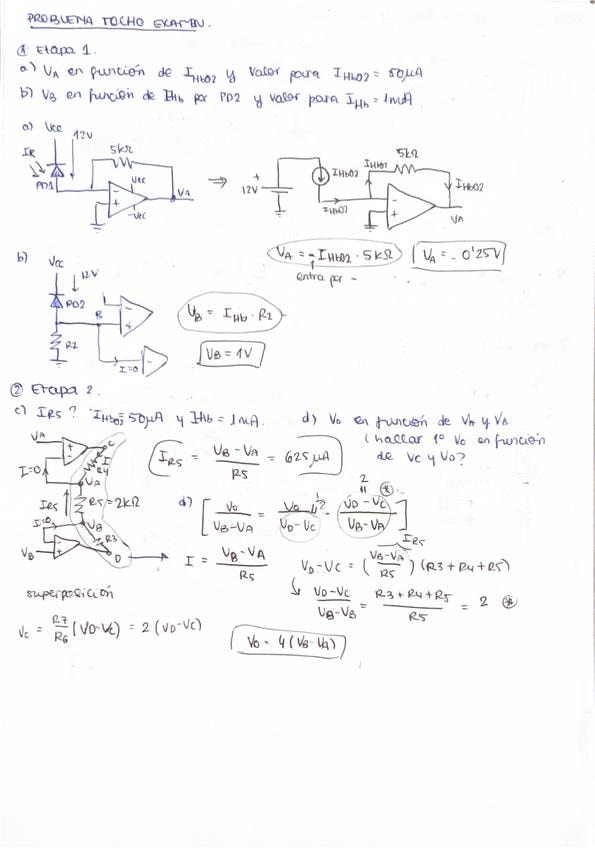 PROBLEMA TOCHO EXAMEN.
① Etapa 1.
a) VA en función de IHbO2 y valor para IHbO2 = 50μA
b) VB en función de IHb por PD2 y valor para IHb = 1mA
a) Vcc
12V
IR
PD1
5kΩ
Vcc
-Vcc
VA
⇒
+
12V
-
IHbO2
IHbO2
IHbO2
5kΩ
IHbO2
VA
VA = - IHbO2 · 5kΩ
VA = - 0'25V
entra por -
b) Vcc
12V
PD2
B
R2
I=0
VB = IHb · R2
VB = 1V
② Etapa 2.
c) IR5 ? IHbO2 = 50μA y IHb = 1mA.
d) Vo en función de VA y VB
(hallar 1º Vo en función
de VC y VD?
VA
I=0
C
I
R4
VA
IR5
R5 = 2kΩ
VB
I=0
R3
VB
D
IR5 = (VB - VA)/R5 = 625μA
d) [Vo/(VB-VA) = Vo/(VD-VC) · (VD-VC)/(VB-VA)]
2
2
IR5
I = (VB - VA)/R5
VD - VC = ((VB-VA)/R5) (R3 + R4 + R5)
(VD-VC)/(VB-VB) = (R3 + R4 + R5)/R5 = 2 *
superposición
Vc = R7/R6 (VD-VC) = 2 (VD-VC)
Vo = 4 (VB - VA)